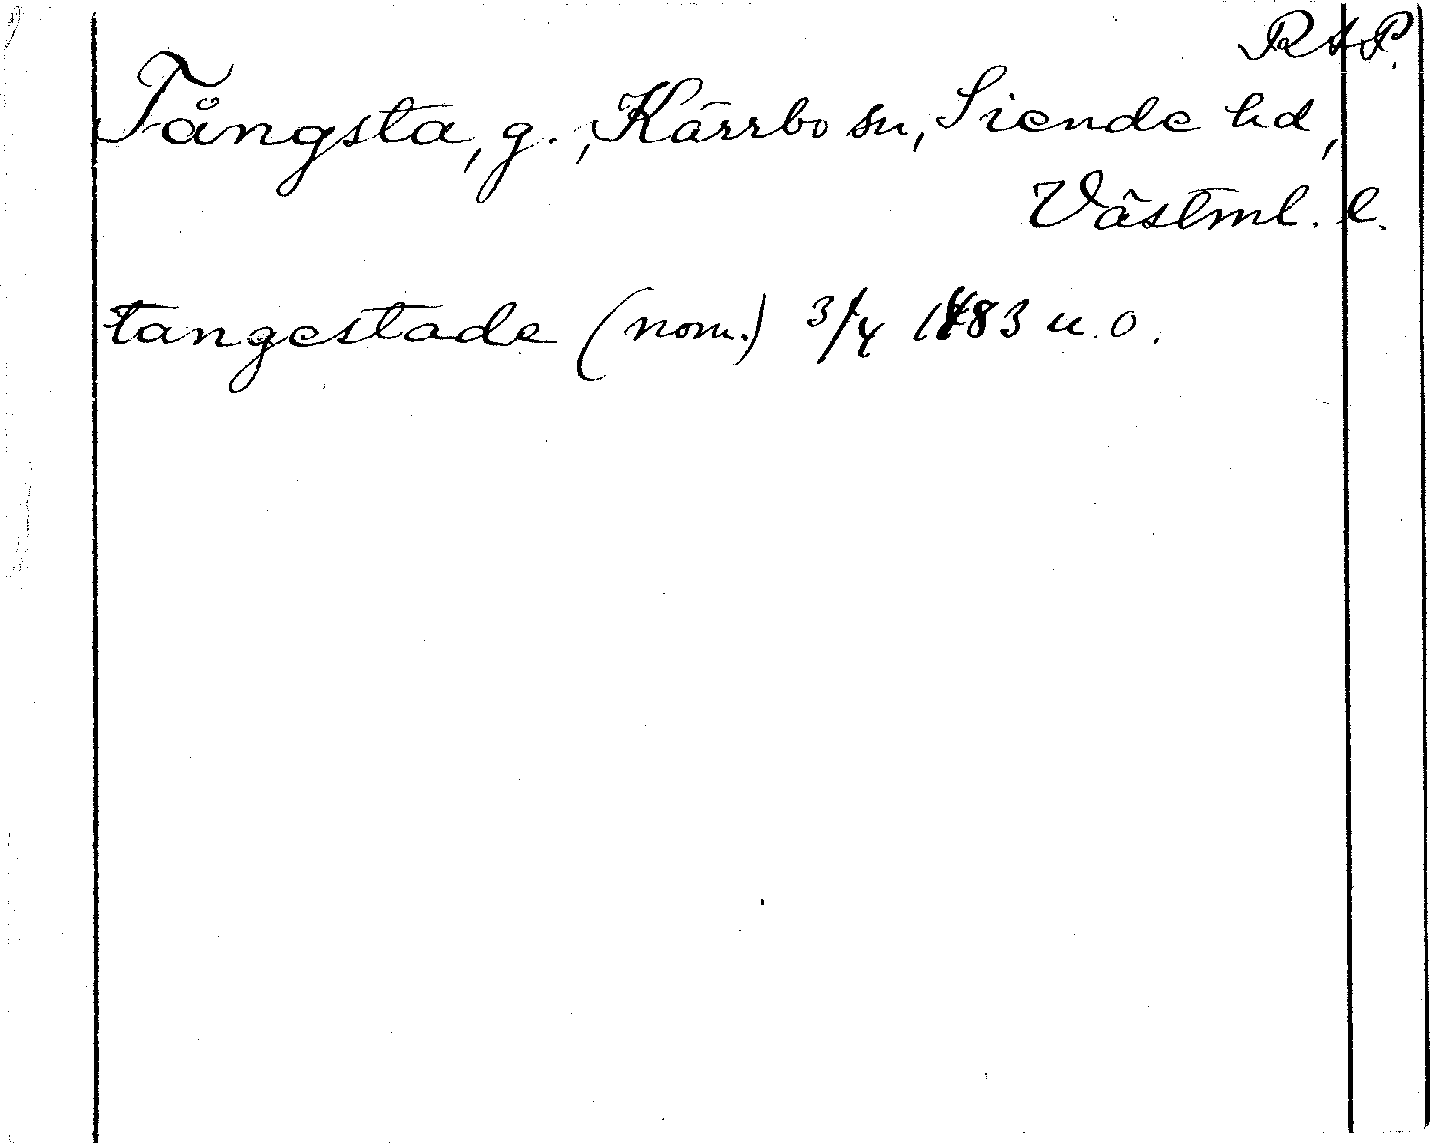 RAP.
Tångsta, g., Kärrbo sn, Siende hd,
Västml. l.
tangestade (nom.) 3/4 1483 u. o.